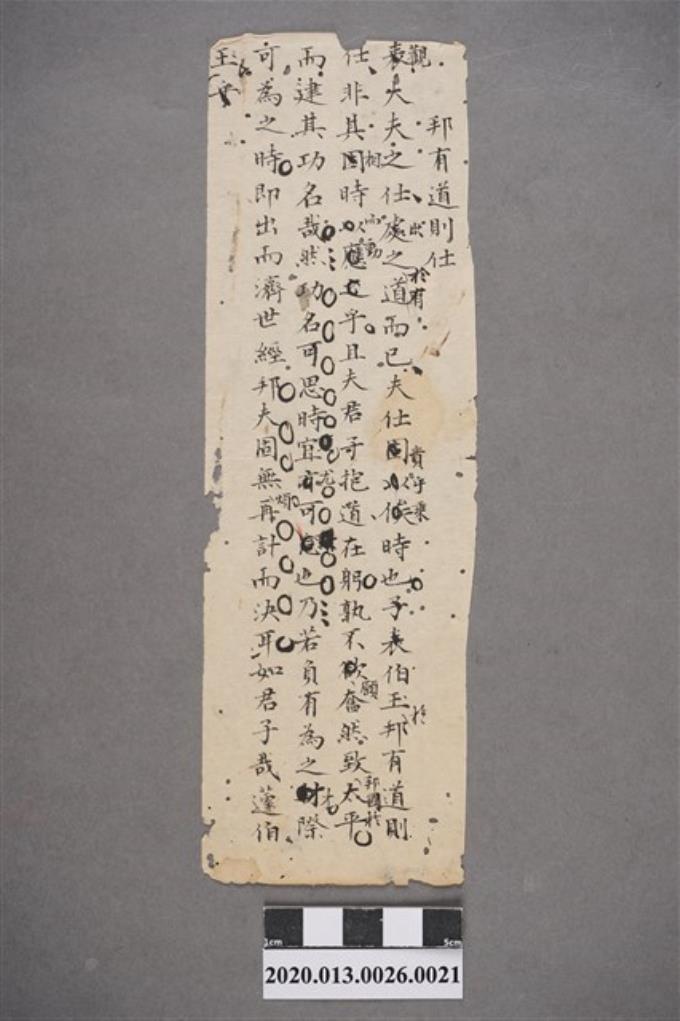 邦有道則仕
表大夫之仕處之道而已夫仕固以俟時也子表伯玉邦有道則
仕非其固時以應之乎且夫君子抱道在躬孰不欲奮然致太平
而建其功名哉然功名可思時宜亦可思也乃若負有為之材際
可為之時即出而濟世經邦夫固無再計而決耳如君子哉蘧伯
玉
觀
出
於有
貴乎乘
於
相
而動
願
邦國於
才
1cm
5cm
2020.013.0026.0021